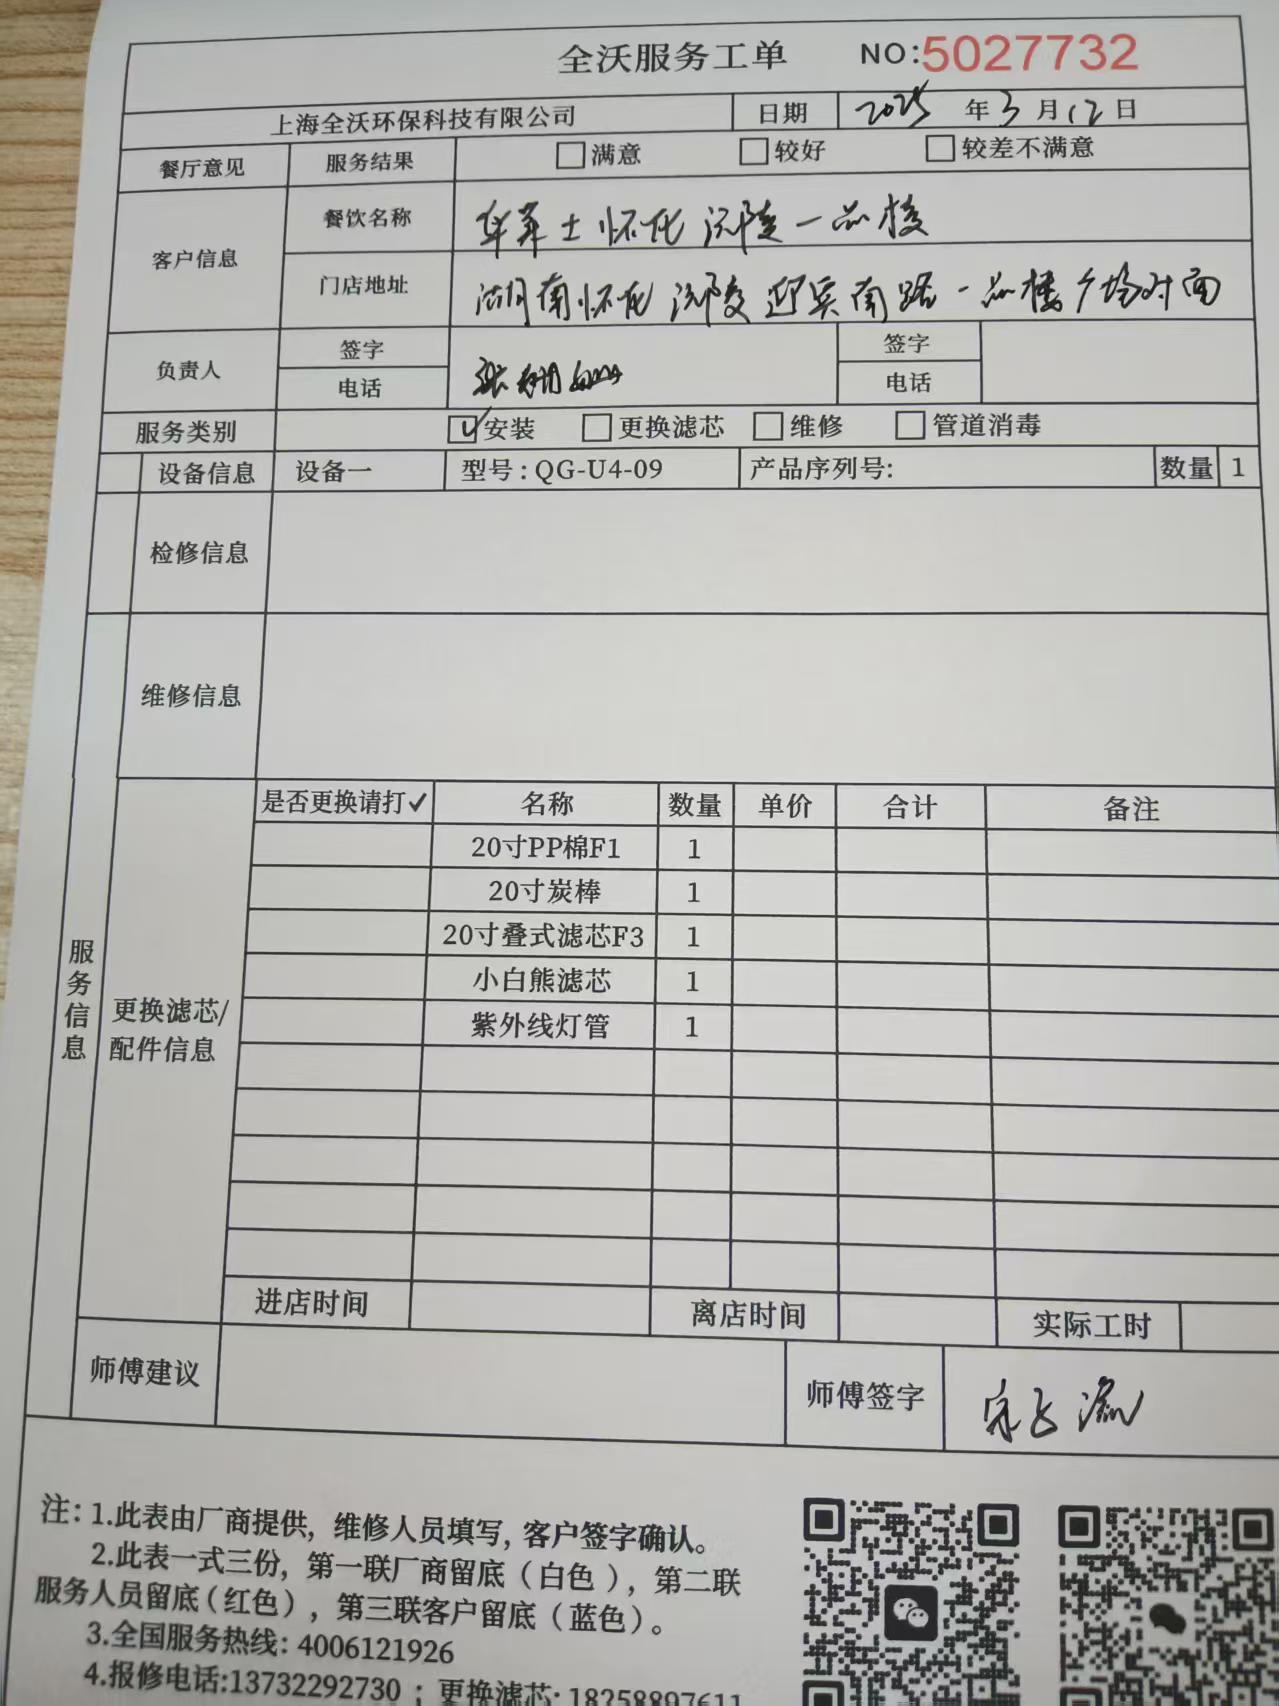 全沃服务工单 NO:5027732
上海全沃环保科技有限公司 日期 2025 年 3 月 12 日
餐厅意见 服务结果 满意 较好 较差不满意
客户信息 餐饮名称 华莱士怀化沅陵一品楼
门店地址 湖南怀化沅陵迎宾南路一品楼广场对面
负责人 签字 签字
电话 电话
服务类别 ✓安装 更换滤芯 维修 管道消毒
设备信息 设备一 型号:QG-U4-09 产品序列号: 数量 1
检修信息
维修信息
服务信息
更换滤芯/
配件信息
是否更换请打✓ 名称 数量 单价 合计 备注
20寸PP棉F1 1
20寸炭棒 1
20寸叠式滤芯F3 1
小白熊滤芯 1
紫外线灯管 1
进店时间 离店时间 实际工时
师傅建议 师傅签字
注: 1.此表由厂商提供, 维修人员填写, 客户签字确认。
2.此表一式三份, 第一联厂商留底(白色), 第二联
服务人员留底(红色), 第三联客户留底(蓝色)。
3.全国服务热线: 4006121926
4.报修电话:13732292730 ; 更换滤芯: 18258897611